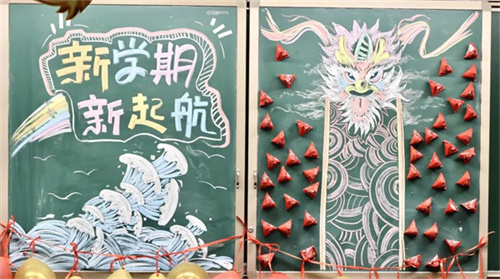 新学期
新起航